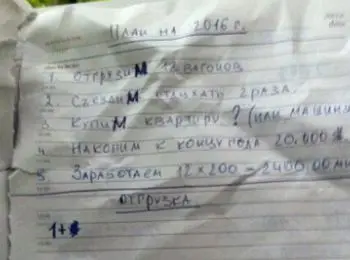 План на 2016 г.
1. Отгрузим 12 вагонов
2. Съездим отдыхать 2 раза.
3. Купим квартиру ? (или машину
4. Накопим к концу года 20.000 $
5. Заработаем 12 × 200 = 2400 00
Отгрузка
1+